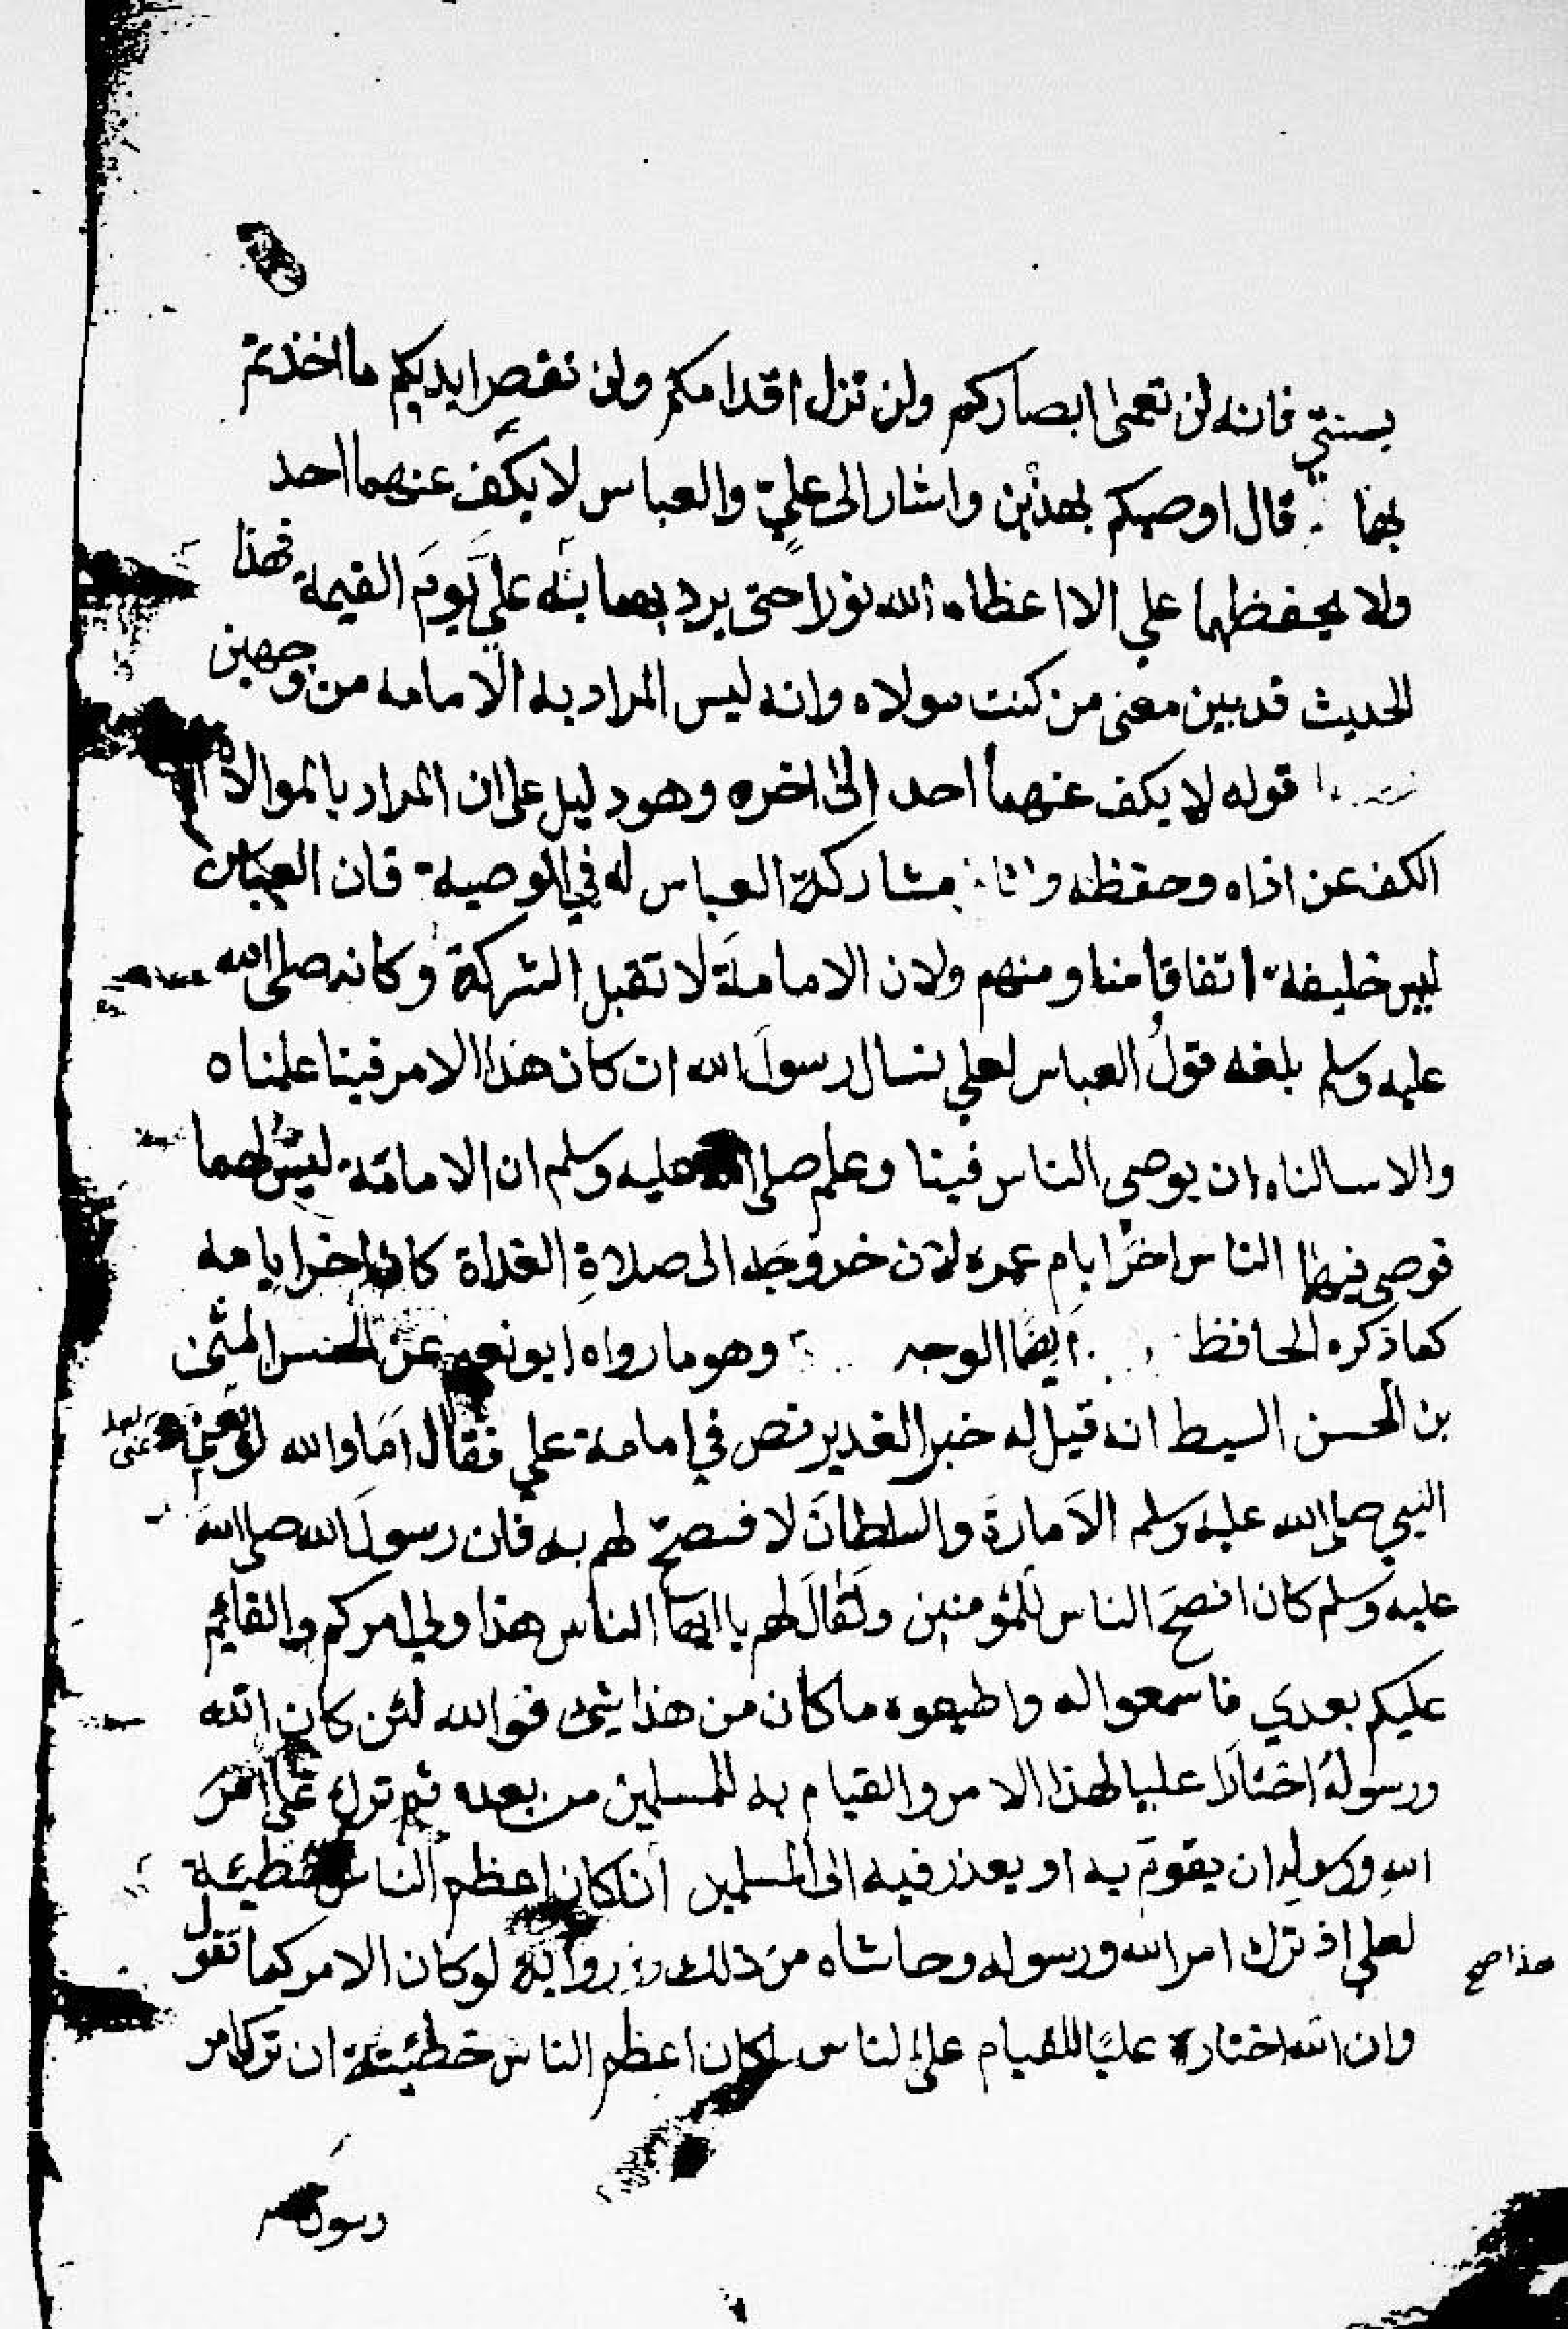 بسنتي فانه لن تعمى ابصاركم ولن تزل اقدامكم ولن تقصر ايديكم ما اخذتم
بها قال اوصيكم بهذين واشار الى علي والعباس لا يكف عنهما احد
ولا يحفظهما علي الا اعطاه الله نورا حتى يرد به علي يوم القيمة فهذا
الحديث قد بين معنى من كنت مولاه وانه ليس المراد به الامامه من وجهين
قوله لا يكف عنهما احد الى اخره وهو دليل على ان المراد بالموالاة
الكف عن اذاه وحفظه مشاركة العباس له في الوصية فان العباس
ليس خليفة اتفاقا منا ومنهم ولان الامامة لا تقبل الشركة وكانه صلى الله
عليه وسلم بلغه قول العباس لعلي نسال رسول الله ان كان هذا الامر فينا علمناه
والا سالناه ان يوصي الناس فينا وعلم صلى الله عليه وسلم ان الامامة ليس لهما
فوصى فيهما الناس اخر ايام عمره لان خروجه الى صلاة الغداة كان اخر ايامه
كما ذكره الحافظ ايضا الوجه وهو ما رواه ابو نعيم عن الحسن المثنى
بن الحسن السبط انه قيل له خبر الغدير نص في امامة علي فقال اما والله لو يعني
النبي صلى الله عليه وسلم الامارة والسلطان لافصح لهم به فان رسول الله صلى الله
عليه وسلم كان افصح الناس للمؤمنين ولقال لهم يا ايها الناس هذا ولي امركم والقائم
عليكم بعدي فاسمعوا له واطيعوه ما كان من هذا شئ فوالله لئن كان الله
ورسوله اختارا عليا لهذا الامر والقيام به للمسلمين من بعده ثم ترك علي امر
الله ورسوله ان يقوم به او يعذر فيه الى المسلمين ان كان اعظم الناس خطيئة
لعلي اذ ترك امر الله ورسوله وحاشاه من ذلك وفي رواية لو كان الامر كما تقول
هذا صح
وان الله اختار عليا للقيام على الناس لكان اعظم الناس خطيئة ان ترك امر
رسول